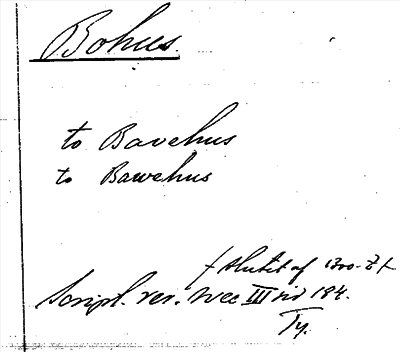 Bohus
to Bavehus
to Bawehus
f slutet af 1300-t
Script. rer. svec III s 184.
Ty.